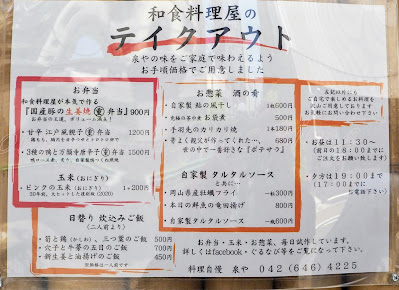 和食料理屋の
テイクアウト
泉やの味をご家庭で味わえるよう
お手頃価格でご用意しました
お弁当
和食料理屋が本気で作る
『国産豚の生姜焼き弁当』900円
甘辛 江戸風餃子 弁当 1,200円
3種の鶏と万願寺唐辛子 弁当 1,500円
玉米(おにぎり)
ピンクの玉米(おにぎり) 1ヶ200円
日替り 炊込みご飯
(二人前より)
筍と鶏(かしわ)、三つ葉のご飯 500円
穴子と牛蒡の五目のご飯 700円
新生姜と油揚げのご飯 450円
お惣菜 酒の肴
自家製 鮎の風干し 1枚600円
お袋煮 500円
手羽先のカリカリ焼 1本180円
昔よく親父が作ってくれた… 680円
世の中で一番好きな『ポテサラ』
自家製 タルタルソース
とあに…
岡山県産牡蠣フライ 一個350円
本日の鮮魚の竜田揚げ 800円
自家製タルタルソース 一瓶600円
お昼は11:30~
(前日の18:00までに
ご注文をお願い致します)
夕方は19:00まで
(17:00までに
お電話下さい)
お弁当・玉米・お惣菜、毎日試作しています。
詳しくはfacebook・ぐるなび等をご覧になって下さい。
料理自慢 泉や 042(646)4225